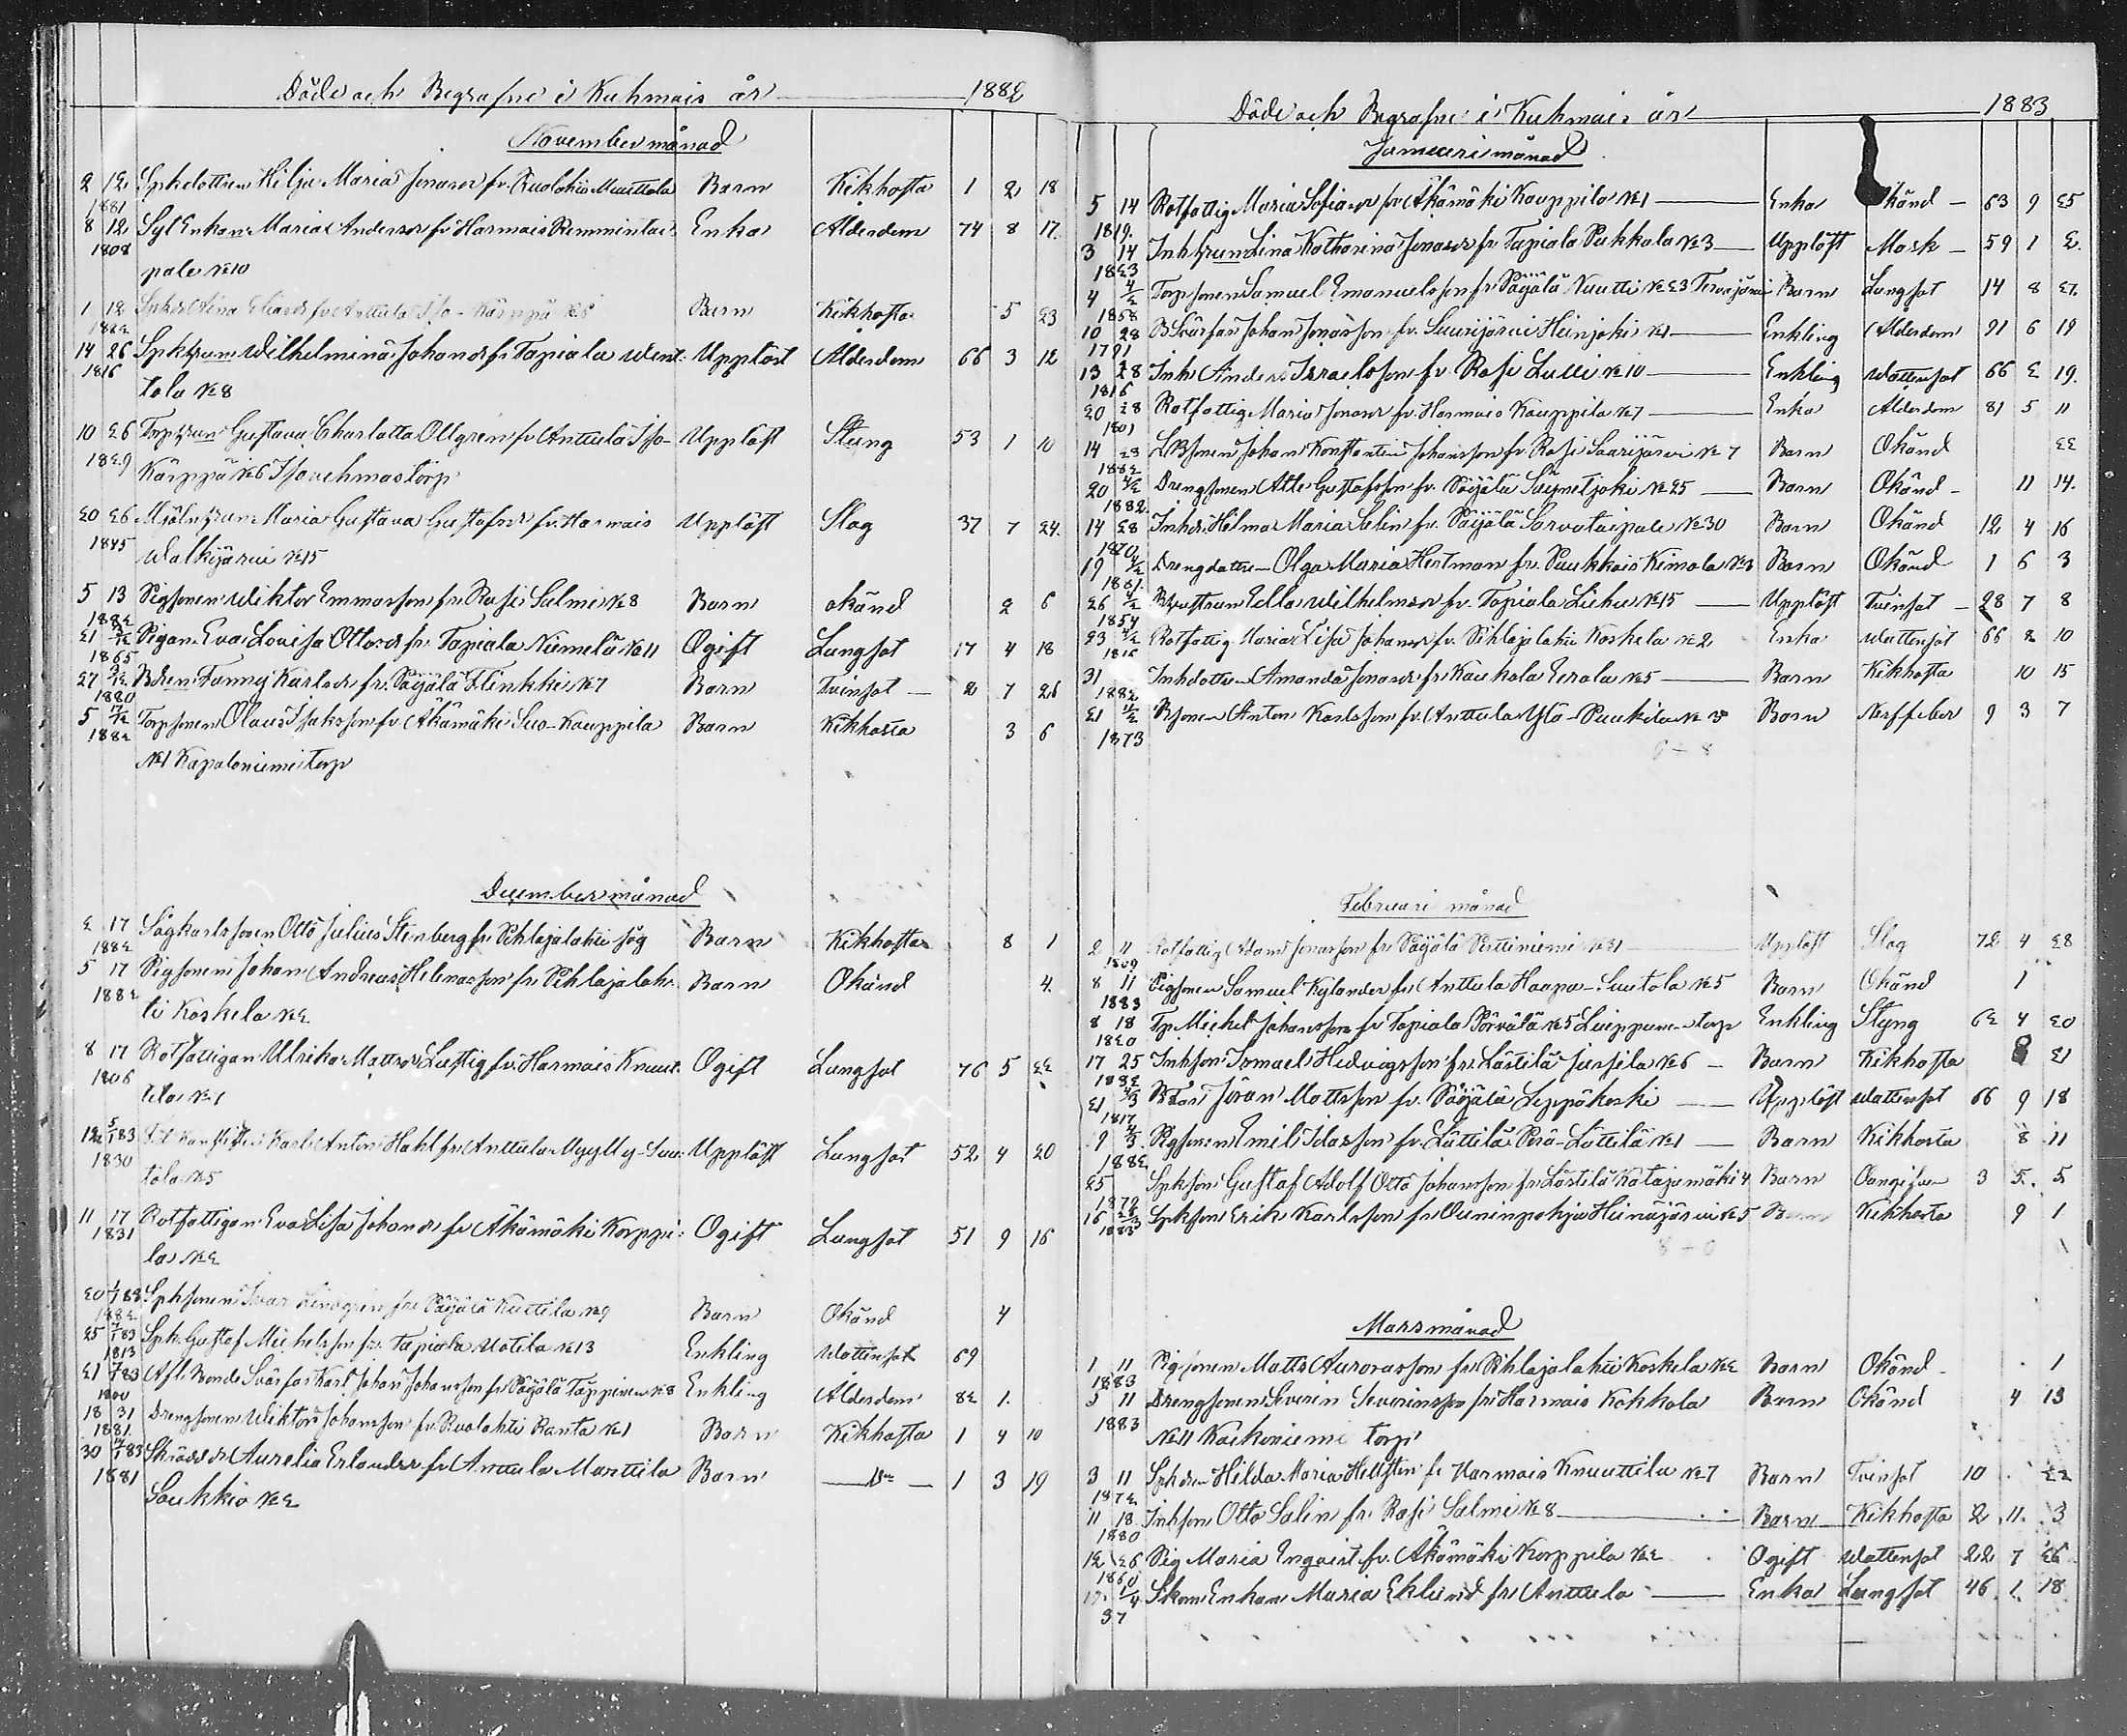 Döde och Begrafne i Kuhmois år 1882
November månad
2 12 Spkdottren Hilja Maria Jonasdr fr. Ruolahti Muuttola Barn Kikhosta 1 2 18
1881
8 12 Syt Enkan Maria Andersdr fr Harmois Remmintai- Enka Ålderdom 74 8 17.
1808
pale No 10
1 12 Spkdr Aina Eliasdr fr Anttula Iso-Kärppä No 6 Barn Kikhosta 5 23
1882
14 26 Spkhrun Wilhelmina Johansdr fr Tapiala Went- Upplöst Ålderdom 66 3 12
1816
tola No 8
10 26 Torphrun Gustava Charlotta Ollgren fr Anttula Iso- Upplöst Stung 53 1 10
1829
Kärppä No 6 Isouchmas torp
20 26 Mjölnhrun Maria Gustava Gustafsdr fr. Harmois Upplöst Slag 37 7 24.
1845
Walkjärvi No 15
5 13 Pigsonen Wiktor Emmasson fr. Rasi Salmi No 8 Barn okänd 2 6
1882
21 3/12 Pigan Eva Lovisa Ottosdr fr. Tapiala Niemelä No 11 Ogift Lungsot 17 4 18
1865
27 3/12 Bdren Fanny Karlsdr fr. Päijälä Flinkki No 7 Barn Tvinsot — 2 7 26
1880
5 17/12 Torpsonen Olaus Isaksson fr. Äkämäki Suo-Kauppila Barn Kikhosta 3 6
1882
No 1 Kapaloniemi torp
December månad
2 17 Sågkarlssonen Otto Julius Stenberg fr. Pihlajalahti såg Barn Kikhosta 8 1
1882
5 17 Pigsonen Johan Andreas Helenasson fr Pihlajalah- Barn Okänd 4.
1882
ti Koskela No 2
8 17 Rotfattigan Ulrika Mattsdr Lustig fr. Harmois Knuut- Ogift Lungsot 76 5 22
1806
tila No 7
12 5/1 83 Karl Anton Hahl fr Anttula Myylly-Suu- Upplöst Lungsot 52 4 20
1830
tola No 5
11 17 Rotfattigan Eva Lisa Johansdr fr Äkämäki Korppi- Ogift Lungsot 51 9 16
1831
la No 2
20 1/1 83 Spksonen Ivar Lindgren fr Päijälä Kuttila No 9 Barn Okänd 4
1882
25 1/1 83 Spk. Gustaf Michelsson fr. Tapiala Uotila No 13 Enkling Wattensot 69
1813
21 1/1 83 Afl. Bonde Svärfar Karl Johan Johansson fr Päijälä Täppinen No 8 Enkling Ålderdom 82 1.
1800
18 31 Drengsonen Wiktor Johansson fr. Ruolahti Ranta No 1 Barn Kikhosta 1 4 10
1881
30 14/1 83 Skrädd.dr Aurelia Erlandsdr fr Anttula Marttila Barn — Do — 1 3 19
1881
Soukkio No 2
Döde och Begrafne i Kuhmois år 1883
Januari månad
5 14 Rotfattig Maria Sofiasdr fr Äkämäki Kauppila No 1 Enka Okänd — 63 9 25
1819.
3 14 Inhhrun Lina Katharina Jonasdr fr. Tapiala Pukkala No 3 Upplöst Mask — 59 1 2.
1823
4 4/2 Torpsonen Samuel Emanuelsson fr. Päijälä Nuutti No 23 Tervajärvi Barn Lungsot 14 8 27.
1868
10 28 B Svärfar Johan Jonasson fr. Suurijärvi Heinjoki No 1 Enkling Ålderdom 91 6 19
1791
13 28 Inh Anders Israelsson fr. Rasi Lulli No 10 Enkling Wattensot 66 2 19.
1816
20 28 Rotfattig Maria Jonasdr fr. Harmois Kauppila No 7 Enka Ålderdom 81 5 11
1801
14 23 LBsonen Johan Konstantin Johansson fr. Rasi Saarijärvi No 7 Barn Okänd 22
1882
20 4/2 Drengsonen Atte Gustafsson fr. Päijälä No 25 Barn Okänd — 11 14.
1882.
14 28 Inhdr. Hilma Maria Selin fr. Päijälä Sarvataipale No 30 Barn Okänd 12 4 16
1870
19 4/2 Drengdottren Olga Maria Hertman fr. Puukkois Kimola No 3 Barn Okänd 1 6 3
1881.
26 4/2 Bhustrun Edla Wilhelmsdr fr. Tapiala Liehu No 15 Upplöst Tvinsot — 28 7 8
1854
23 4/2 Rotfattig Maria Lisa Johansdr fr. Pihlajalahti Koskela No 2 Enka Wattensot 66 2 10
1816
31 Inhdottren Amanda Jonasdr fr Kaukola Erola No 5 Barn Kikhosta 10 15
1882
21 11/2 Bsonen Anton Karlsson fr. Anttula Ylö-Puukila No 3 Barn Nerffeber 9 3 7
1873
9 – 8
Februari månad
2 11 Rotfattig Adam Jonasson fr Päijälä Perttiniemi No 31 Upplöst Slag 72 4 28
1809
8 11 Pigsonen Samuel Kylander fr Anttula Haapa-Suutola No 5 Barn Okänd 1
1883
8 18 Tp. Michel Johansson fr Tapiala Pörvälä No 5 torp Enkling Styng 62 4 20
1820
17 25 Inhson Ismael Hedvigsson fr. Lästilä Jussila No 6 — Barn Kikhosta 8 21
1882
21 4/3 Jöran Mattsson fr. Päijälä Leppäkoski Upplöst Wattensot 66 9 18
1817
9 4/3 Pigsonen Emil Idasson fr. Lättilä Perä-Lättilä No 1 — Barn Kikhosta 8 11
1882
25 Spkson Gustaf Adolf Otto Johansson fr. Lästilä Katajamäki 4 Barn Oangifven 3 5. 5
1879
16 Spkson Erik Karlsson fr Ouninpohja Heinäjärvi No 5 Barn Kikhosta 9 1
8 – 0
Mars månad
1 11 Pigsonen Matts Aurorasson fr. Pihlajalahti Koskela No 2 Barn Okänd 1
1883
3 11 Drengsonen Severin Severinsson fr. Harmois Kokkola Barn Okänd 4 13
1883
No 11 Kaikoniemi torp
3 11 Spkdren Hilda Maria Hellsten fr Harmois Knuuttila No 7 Barn Tvinsot 10 22
1872
11 18 Inhson Otto Salin fr. Rasi Salmi No 8 Barn Kikhosta 2 11. 3
1880
12 26 Pig Maria Enqvist fr. Äkämäki Korppila No 2 Ogift Wattensot 22 7 26
1860
17 1/4 Skom Enkan Maria Eklund fr Anttula Enka Lungsot 46 1 18
37